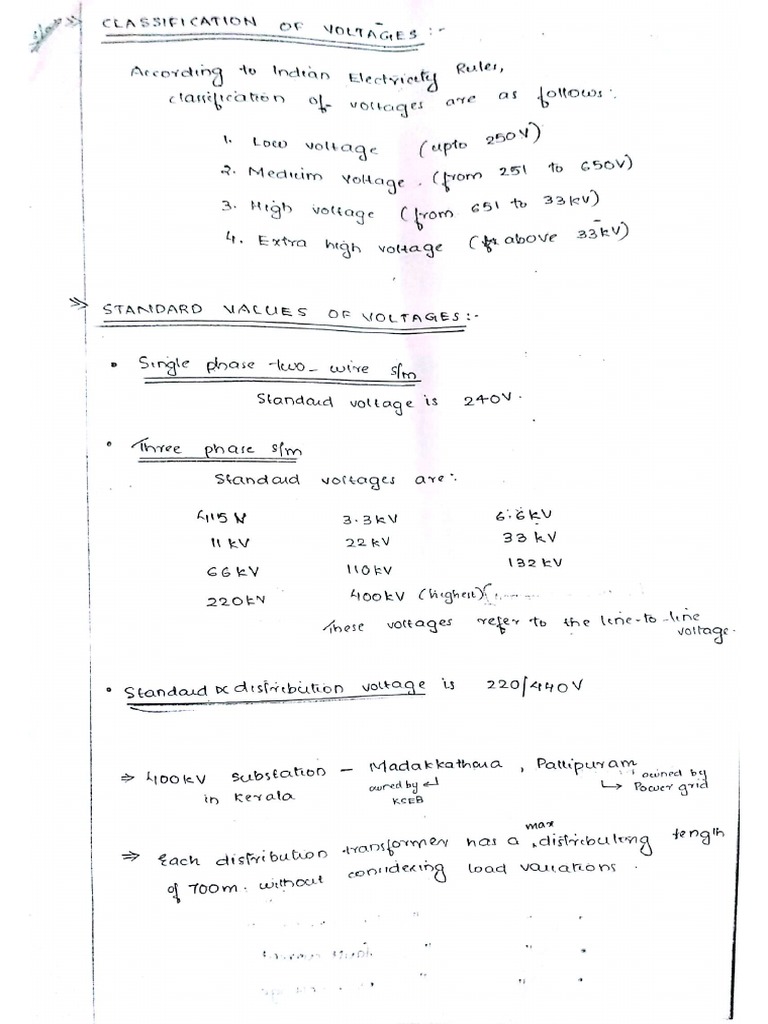 >> CLASSIFICATION OF VOLTAGES :-
According to Indian Electricity Rules,
classification of voltages are as follows:
1. Low voltage (upto 250V)
2. Medium voltage. (from 251 to 650V)
3. High voltage (from 651 to 33kV)
4. Extra high voltage (above 33kV)
>> STANDARD VALUES OF VOLTAGES :-
• Single phase two-wire s/m
Standard voltage is 240V.
• Three phase s/m
Standard voltages are:
415 V 3.3kV 6.6kV
11 kV 22kV 33 kV
66 kV 110kV 132 kV
220kV 400kV (highest)
These voltages refer to the line-to-line
voltage.
• Standard DC distribution voltage is 220/440V
⇒ 400kV substation – Madakkathara, Pallipuram
in Kerala owned by ↵ KSEB ↳ owned by Power grid
⇒ Each distribution transformer has a max distributing length
of 700m. without considering load variations.